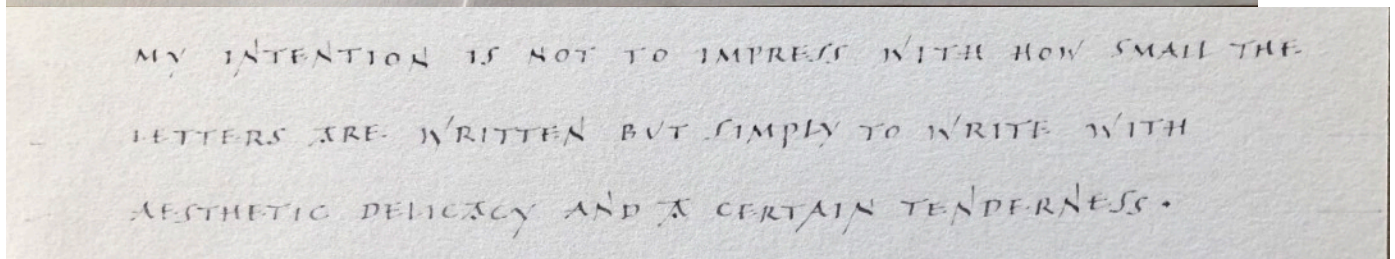 MY INTENTION IS NOT TO IMPRESS WITH HOW SMALL THE
LETTERS ARE WRITTEN BUT SIMPLY TO WRITE WITH
AESTHETIC DELICACY AND A CERTAIN TENDERNESS.